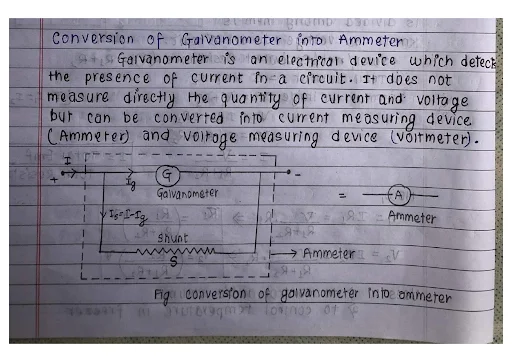 Conversion of Galvanometer into Ammeter
Galvanometer is an electrical device which detect
the presence of current in a circuit. It does not
measure directly the quantity of current and voltage
but can be converted into current measuring device
(Ammeter) and voltage measuring device (voltmeter).
I
+
Ig
G
-
Galvanometer
= A
Is=I-Ig
Ammeter
shunt
S
→ Ammeter
Fig conversion of galvanometer into ammeter